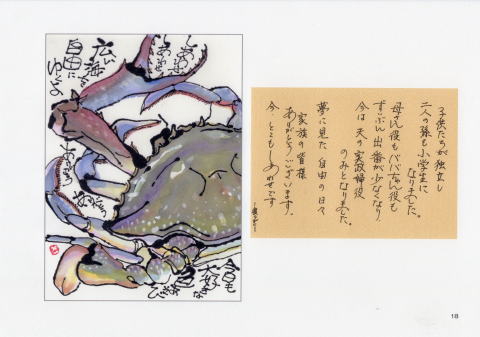 しあわせ
しあわせ
広い海を
自由に
ゆくよ
今日も
大好きな
色あそび
子供たちが独立し
二人の孫も小学生に
なりました。
母さん役もババちゃん役も
ずいぶん出番が少なくなり、
今は夫の家政婦役
のみとなりました。
夢に見た自由の日々
家族の皆様
ありがとうございます。
今、とてもしあわせです
18